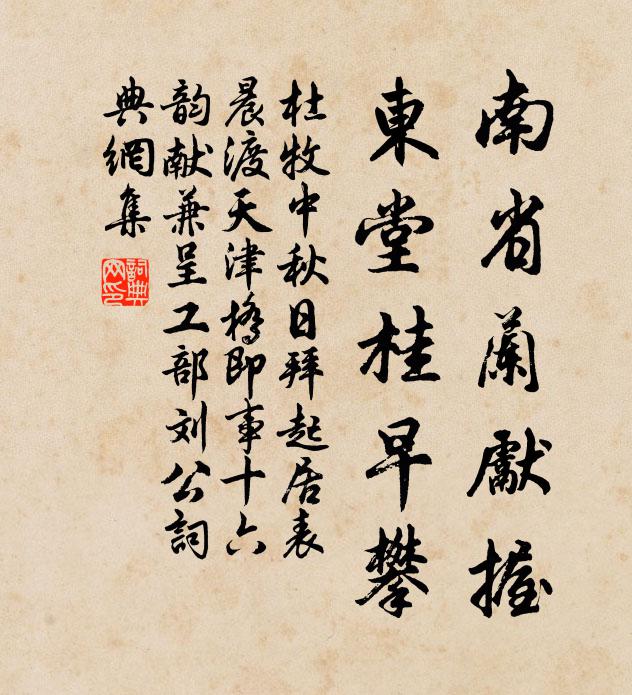 南省蘭獻握
東堂桂早攀
杜牧中秋日拜起居表
晨渡天津橋即事十六
韵献兼呈工部刘公詞
典網集
詞典網印